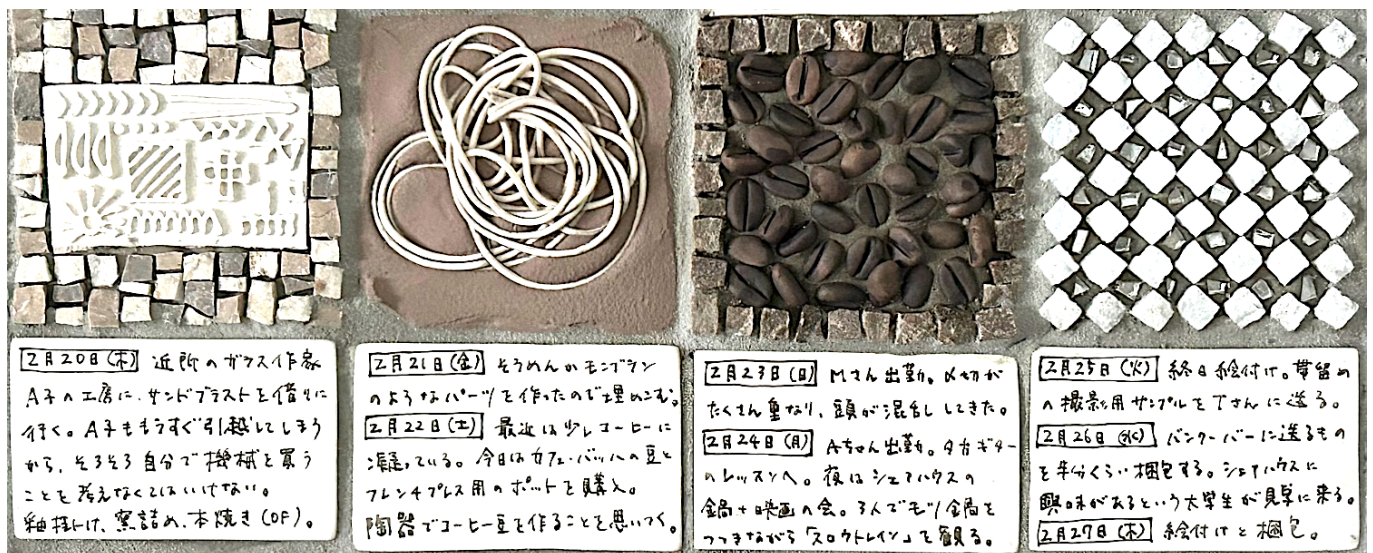 2月20日(木) 近所のガラス作家
A子の工房に、サンドブラストを借りに
行く。A子ももうすぐ引越してしまう
から、そろそろ自分で機械を買う
ことを考えなくてはいけない。
釉掛け、窯詰め、本焼き(OF)。
2月21日(金) そうめんかモンブラン
のようなパーツを作ったので埋めこむ。
2月22日(土) 最近は少しコーヒーに
凝っている。今日はカフェ・バッハの豆と
フレンチプレス用のポットを購入。
陶器でコーヒー豆を作ることを思いつく。
2月23日(日) Mさん出勤。〆切が
たくさん重なり、頭が混乱してきた。
2月24日(月) Aちゃん出勤。夕方ギター
のレッスンへ。夜はシェアハウスの
鍋+映画の会。3人でモツ鍋を
つつきながら「スロウトレイン」を観る。
2月25日(火) 終日絵付け。帯留め
の撮影用サンプルをTさんに送る。
2月26日(水) バンクーバーに送るもの
を半分くらい梱包する。シェアハウスに
興味があるという大学生が見学に来る。
2月27日(木) 絵付けと梱包。